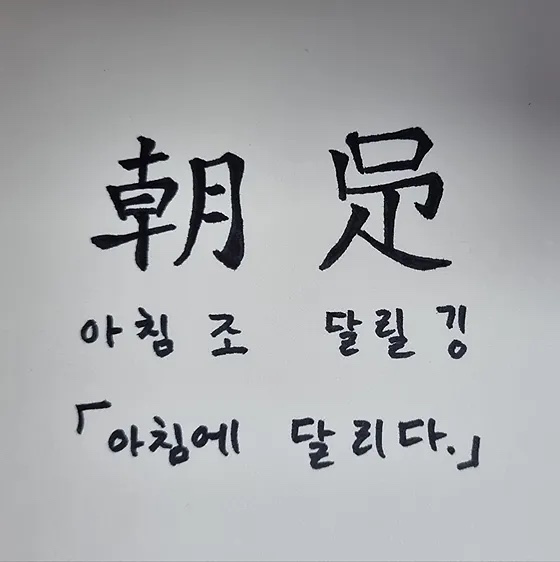 朝
아침 조 달릴 깅
「아침에 달리다.」